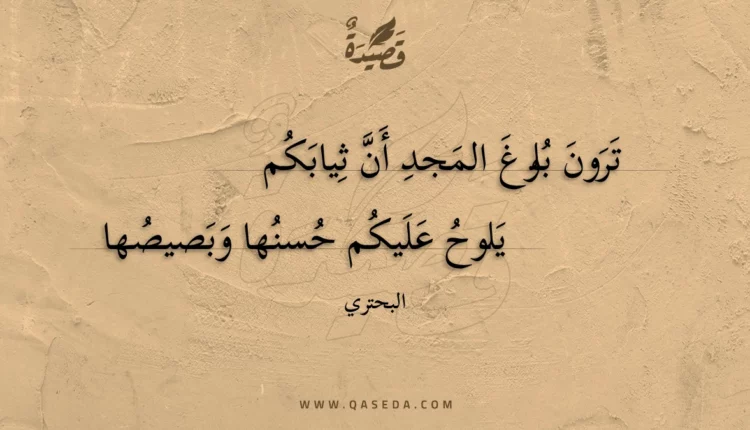 قَصِيدَةٌ
تَرَونَ بُلوغَ المَجدِ أَنَّ ثِيابَكُم
يَلوحُ عَلَيكُم حُسنُها وَبَصيصُها
البحتري
WWW.QASEDA.COM